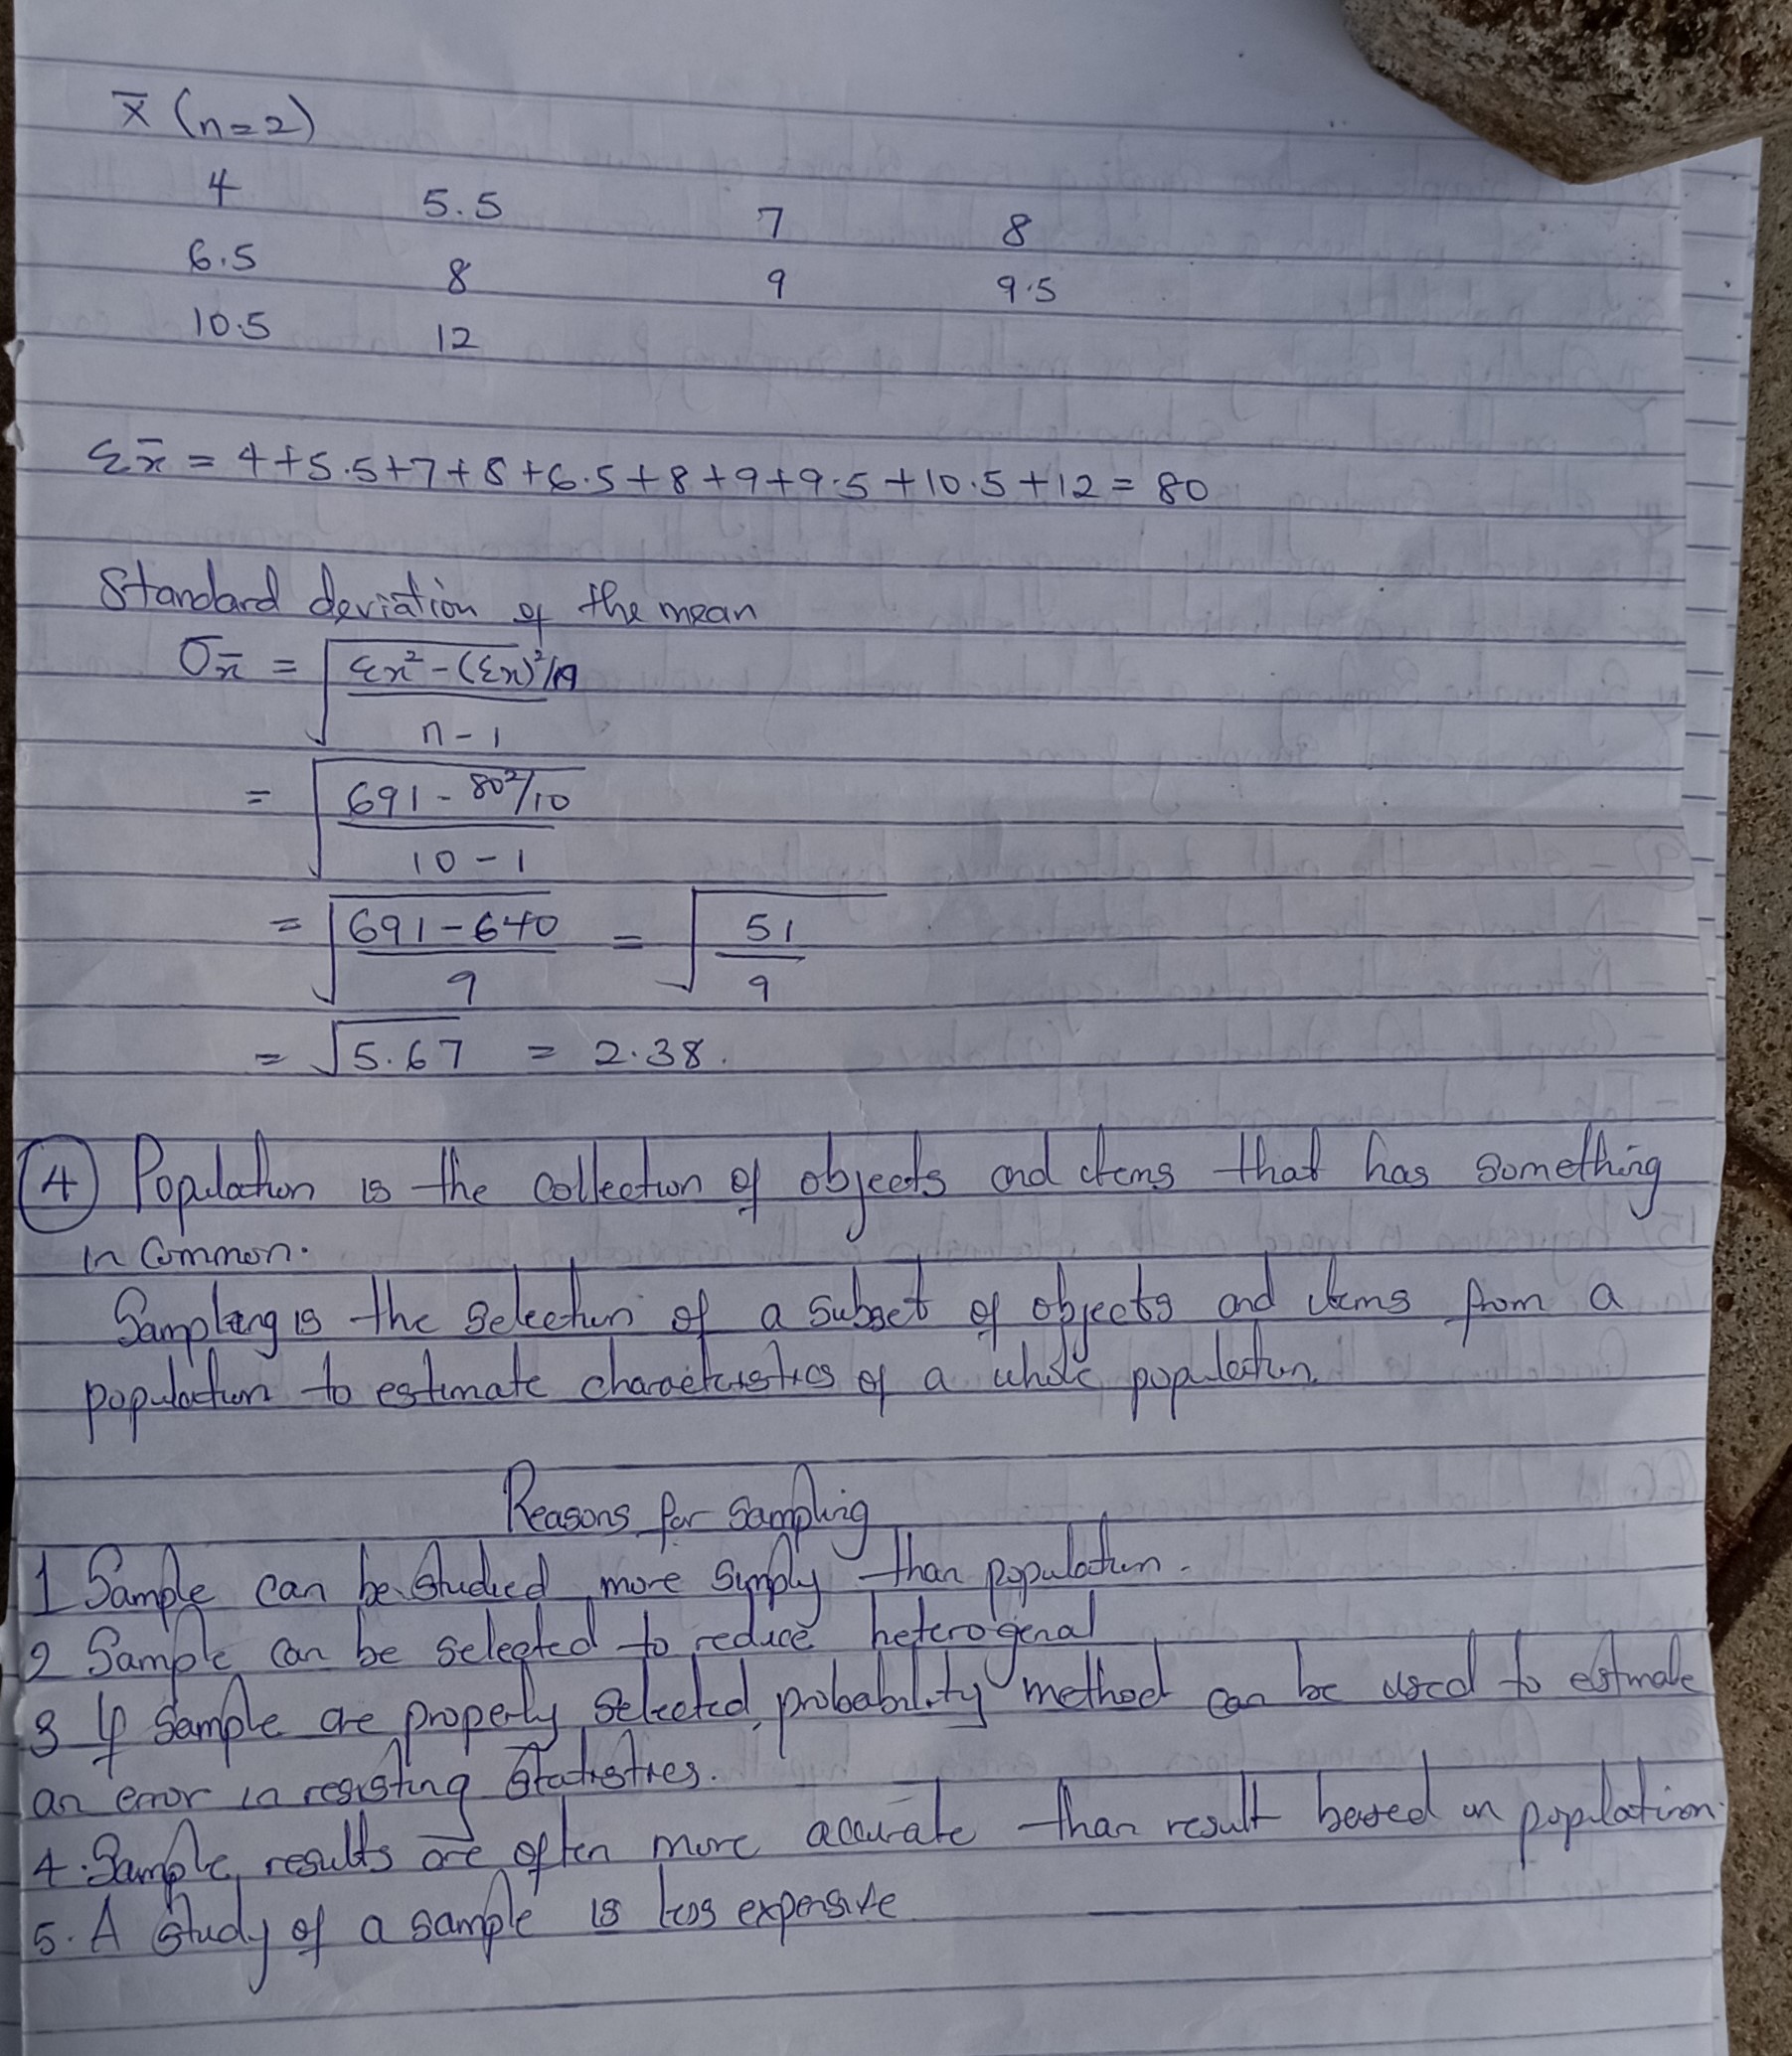 x̄ (n=2)
4 5.5 7 8
6.5 8 9 9.5
10.5 12
Σx̄ = 4+5.5+7+8+6.5+8+9+9.5+10.5+12 = 80
Standard deviation of the mean
σx̄ = √ Σx² - (Σx)²/n
n - 1
= √ 691 - 80²/10
10 - 1
= √ 691 - 640 = √ 51
9 9
= √5.67 = 2.38.
4 Population is the collection of objects and items that has something
in Common.
Sampling is the selection of a subset of objects and items from a
population to estimate characteristics of a whole population.
Reasons for sampling
1 Sample can be studied more simply than population.
2 Sample can be selected to reduce heterogenal
3 If sample are properly selected, probability method can be used to estimate
an error in resisting statistics.
4. Sample results are often more accurate than result based on population.
5. A study of a sample is less expensive